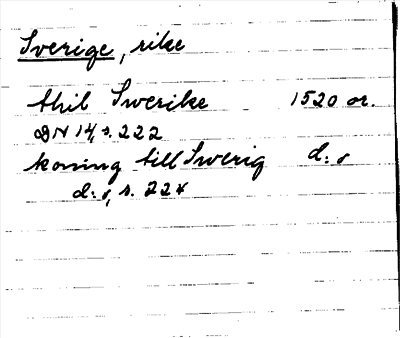 Sverige, rike
thil Swerike 1520 or.
DN 14, s. 222
koning till Swerig d:o
d:o, s. 224